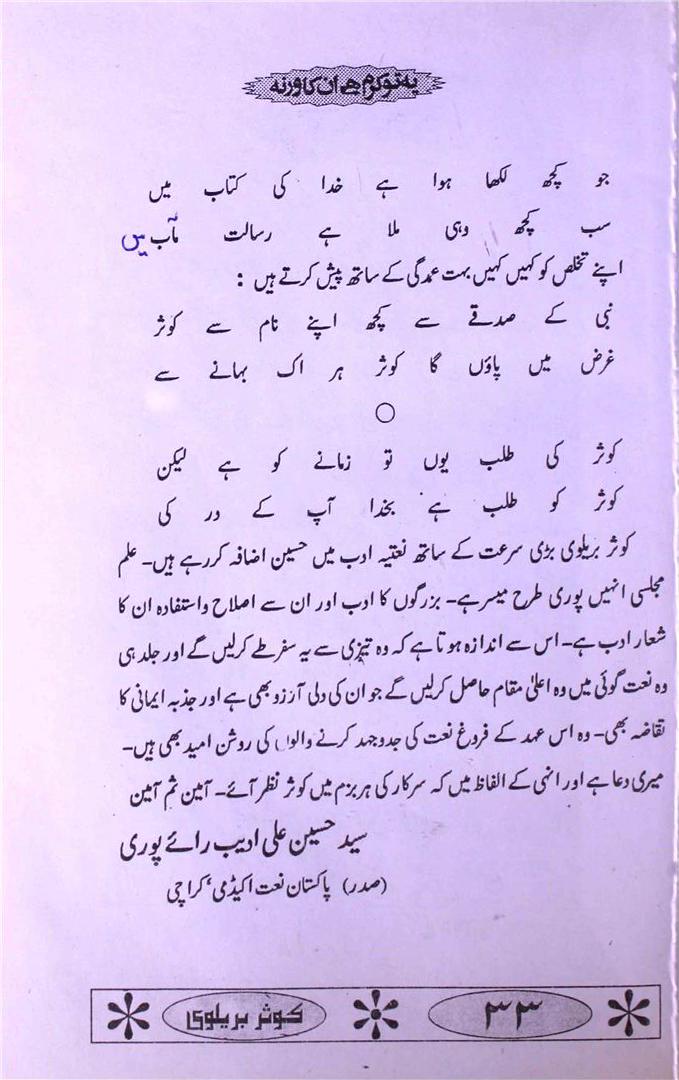 یہ تو کرم ہے ان کا ورنہ
جو کچھ لکھا ہوا ہے خدا کی کتاب میں
سب کچھ وہی ملا ہے رسالت مآب میں
اپنے تخلص کو کہیں کہیں بہت عمدگی کے ساتھ پیش کرتے ہیں :
نبی کے صدقے سے کچھ اپنے نام سے کوثر
غرض میں پاؤں گا کوثر ہر اک بہانے سے
○
کوثر کی طلب یوں تو زمانے کو ہے لیکن
کوثر کو طلب ہے بخدا آپ کے در کی
کوثر بریلوی بڑی سرعت کے ساتھ نعتیہ ادب میں حسین اضافہ کررہے ہیں۔ علم
مجلسی انہیں پوری طرح میسر ہے۔ بزرگوں کا ادب اور ان سے اصلاح واستفادہ ان کا
شعار ادب ہے۔ اس سے اندازہ ہوتا ہے کہ وہ تیزی سے یہ سفر طے کرلیں گے اور جلد ہی
وہ نعت گوئی میں وہ اعلیٰ مقام حاصل کرلیں گے جو ان کی دلی آرزو بھی ہے اور جذبہ ایمانی کا
تقاضہ بھی۔ وہ اس عہد کے فروغ نعت کی جدوجہد کرنے والوں کی روشن امید بھی ہیں۔
میری دعا ہے اور انہی کے الفاظ میں کہ سرکار کی ہر بزم میں کوثر نظر آئے۔ آمین ثم آمین
سید حسین علی ادیب رائے پوری
(صدر) پاکستان نعت اکیڈمی، کراچی
۳۳ کوثر بریلوی